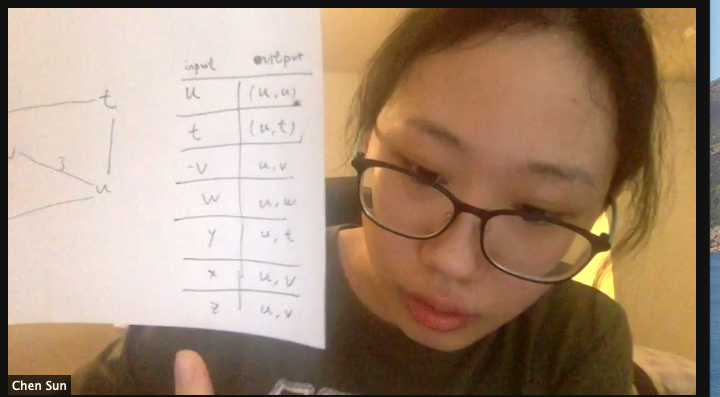 input output
u (u, u)
t (u, t)
-v u, v
w u, w
y u, t
x u, v
z u, v
t
3
u
Chen Sun